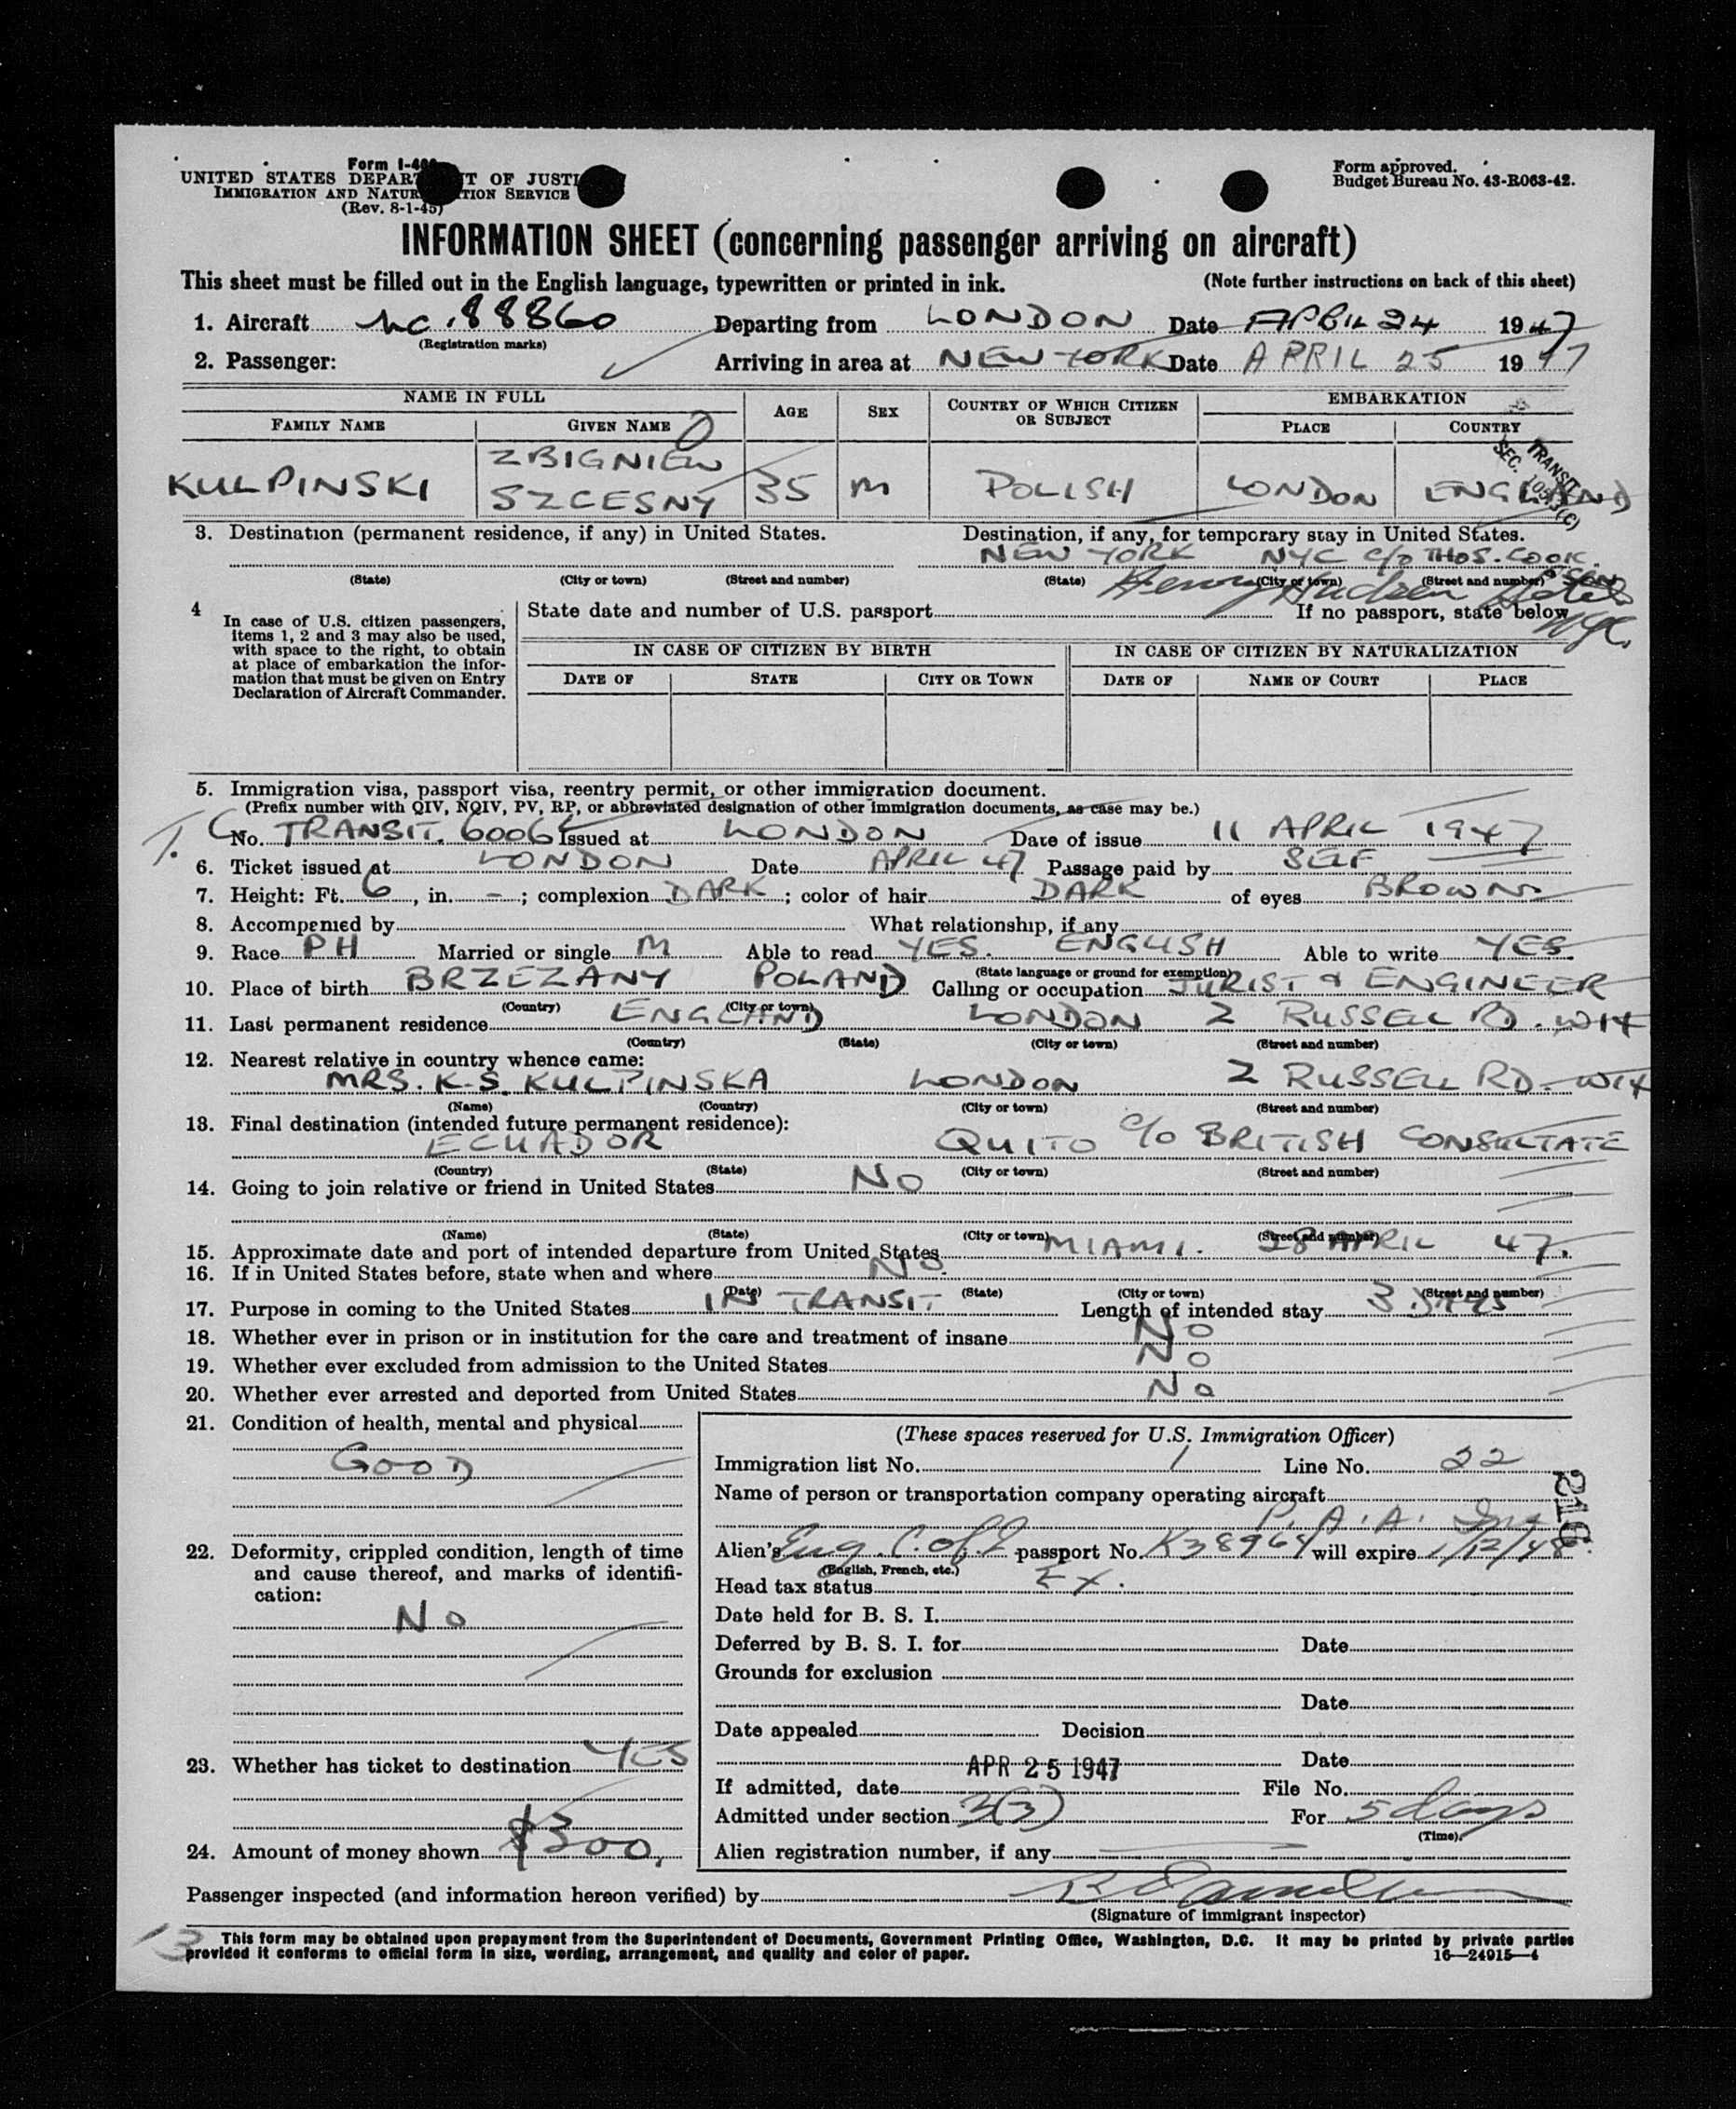 Form I-4
UNITED STATES DEPAR T OF JUSTI
IMMIGRATION AND NATUR TION SERVICE
(Rev. 8-1-45)
Form approved.
Budget Bureau No. 43-R063-42.
INFORMATION SHEET (concerning passenger arriving on aircraft)
This sheet must be filled out in the English language, typewritten or printed in ink. (Note further instructions on back of this sheet)
1. Aircraft NC.88860 Departing from LONDON Date APRIL 24 1947
(Registration marks)
2. Passenger: Arriving in area at NEW YORK Date APRIL 25 1947
NAME IN FULL AGE SEX COUNTRY OF WHICH CITIZEN OR SUBJECT EMBARKATION
FAMILY NAME GIVEN NAME PLACE COUNTRY
KULPINSKI ZBIGNIEW SZCESNY 35 M POLISH LONDON ENGLAND
TRANSIT
SEC.
3. Destination (permanent residence, if any) in United States. Destination, if any, for temporary stay in United States.
NEW YORK NYC c/o THOS. COOK & SON
(State) (City or town) (Street and number) (State) (City or town) (Street and number)
Henry Hudson Hotel
NYC.
4 In case of U.S. citizen passengers, items 1, 2 and 3 may also be used, with space to the right, to obtain at place of embarkation the information that must be given on Entry Declaration of Aircraft Commander.
State date and number of U.S. passport If no passport, state below
IN CASE OF CITIZEN BY BIRTH IN CASE OF CITIZEN BY NATURALIZATION
DATE OF STATE CITY OR TOWN DATE OF NAME OF COURT PLACE
5. Immigration visa, passport visa, reentry permit, or other immigration document.
(Prefix number with QIV, NQIV, PV, RP, or abbreviated designation of other immigration documents, as case may be.)
T.C. No. TRANSIT. 6006 Issued at LONDON Date of issue 11 APRIL 1947
6. Ticket issued at LONDON Date APRIL 47 Passage paid by SELF
7. Height: Ft. 6, in. -; complexion DARK; color of hair DARK of eyes BROWN
8. Accompenied by What relationship, if any
9. Race PH Married or single M Able to read YES. ENGLISH Able to write YES.
(State language or ground for exemption)
10. Place of birth BRZEZANY POLAND Calling or occupation JURIST & ENGINEER
(Country) (City or town)
11. Last permanent residence ENGLAND LONDON 2 RUSSELL RD. W14
(Country) (State) (City or town) (Street and number)
12. Nearest relative in country whence came:
MRS. K.S. KULPINSKA LONDON 2 RUSSELL RD. W14
(Name) (Country) (City or town) (Street and number)
13. Final destination (intended future permanent residence):
ECUADOR QUITO c/o BRITISH CONSULTATE
(Country) (State) (City or town) (Street and number)
14. Going to join relative or friend in United States NO
(Name) (State) (City or town) (Street and number)
15. Approximate date and port of intended departure from United States MIAMI. 28 APRIL 47.
16. If in United States before, state when and where NO.
(Date) (State) (City or town) (Street and number)
17. Purpose in coming to the United States IN TRANSIT Length of intended stay 3 DAYS
18. Whether ever in prison or in institution for the care and treatment of insane NO
19. Whether ever excluded from admission to the United States NO
20. Whether ever arrested and deported from United States NO
21. Condition of health, mental and physical
GOOD
22. Deformity, crippled condition, length of time
and cause thereof, and marks of identifi-
cation:
NO
23. Whether has ticket to destination YES
24. Amount of money shown $300.
(These spaces reserved for U.S. Immigration Officer)
Immigration list No. 1 Line No. 22
Name of person or transportation company operating aircraft
P. A. A. Inc
216
Alien's Eng. C. of I passport No. K38964 will expire 1/12/48
(English, French, etc.)
Head tax status EX.
Date held for B. S. I.
Deferred by B. S. I. for Date
Grounds for exclusion
Date
Date appealed Decision
Date
If admitted, date APR 25 1947 File No.
Admitted under section 3(3) For 5 days
(Time)
Alien registration number, if any
Passenger inspected (and information hereon verified) by
(Signature of immigrant inspector)
13
This form may be obtained upon prepayment from the Superintendent of Documents, Government Printing Office, Washington, D.C. It may be printed by private parties
provided it conforms to official form in size, wording, arrangement, and quality and color of paper. 16—24915-4